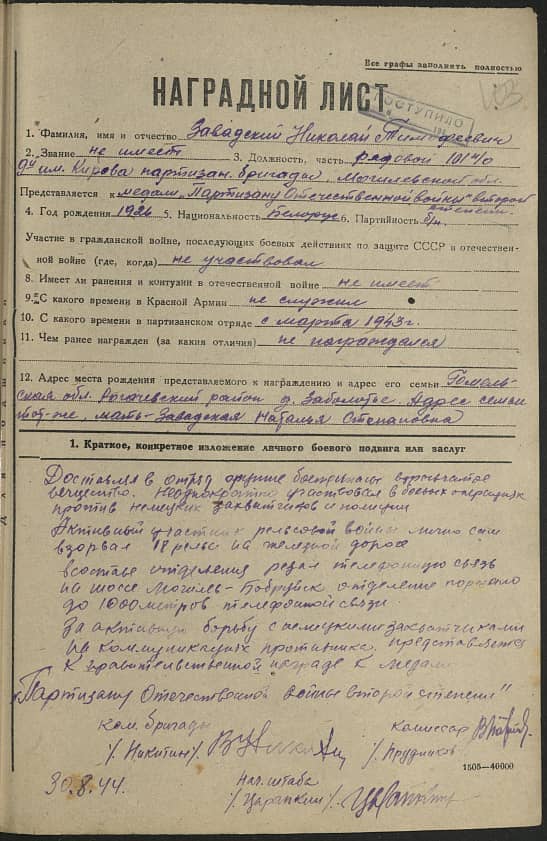 Все графы заполнить полностью
НАГРАДНОЙ ЛИСТ.
ПОСТУПИЛО
1. Фамилия, имя и отчество Завадский Николай Тимофеевич
2. Звание не имеет 3. Должность, часть рядовой 101 ч/о
им. Кирова партизан. бригады, Могилевской обл.
Представляется к медали „Партизану Отечественной войны" второй
степени.
4. Год рождения 1926 5. Национальность белорус 6. Партийность б/п.
Участие в гражданской войне, последующих боевых действиях по защите СССР и отечествен-
ной войне (где, когда) не участвовал
8. Имеет ли ранения и контузии в отечественной войне не имеет
9. С какого времени в Красной Армии не служил
10. С какого времени в партизанском отряде с марта 1943 г.
11. Чем ранее награжден (за какия отличия) не награждался
12. Адрес места рождения представляемого к награждению и адрес его семьи Гомель-
ская обл. Рогачевский район д. Заболотье. Адрес семьи
тот-же, мать - Завадская Наталья Степановна
1. Краткое, конкретное изложение личного боевого подвига или заслуг
Доставлял в отряд оружие боеприпасы взрывчатое
вещество. Неоднократно участвовал в боевых операциях
против немецких захватчиков и полиции
Активный участник рельсовой войны лично сам
взорвал 18 рельс на железной дороге
в составе отделения резал телефонную связь
на шоссе Могилев-Бобруйск отделение порезало
до 1000 метров телефонной связи
За активную борьбу с немецкими захватчиками
на коммуникациях противника представляется
к правительственной награде к медали
„Партизану Отечественной войны второй степени"
Ком. бригады
комиссар
/Никитин/
/Прудников
30.8.44.
нач. штаба
/Царапкин/
1505—40000